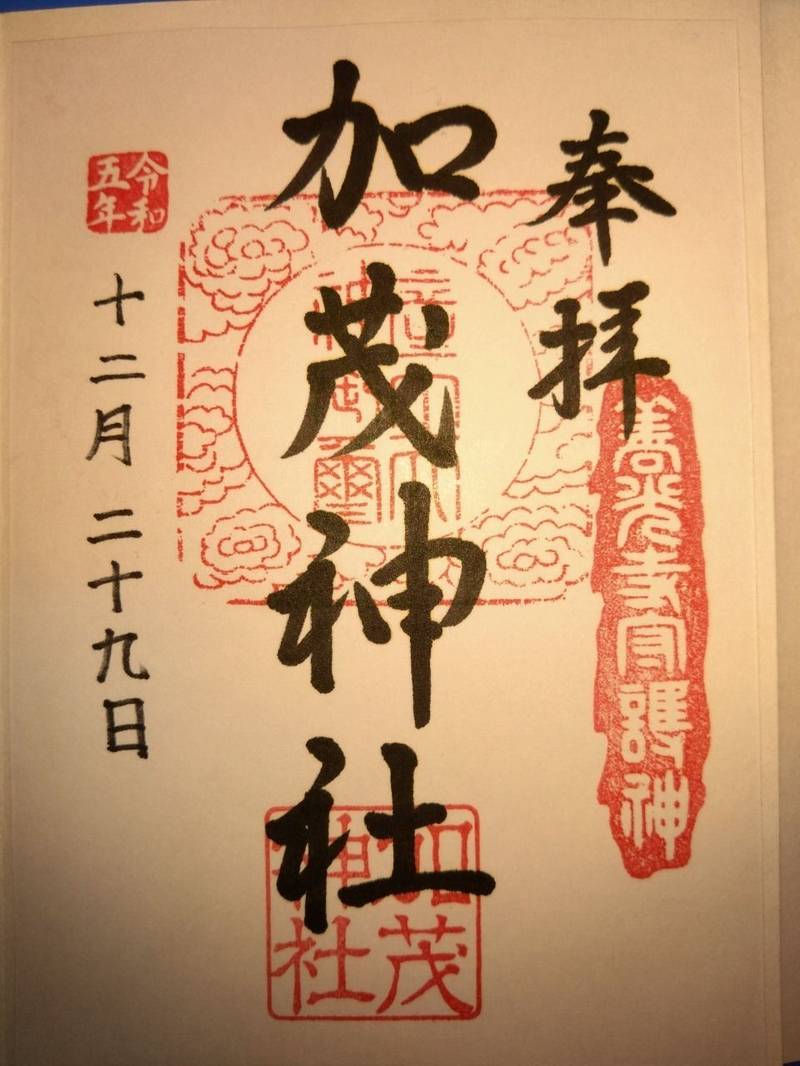 奉拝
善光寺守護神
加茂神社
加茂神社
令和五年
十二月二十九日